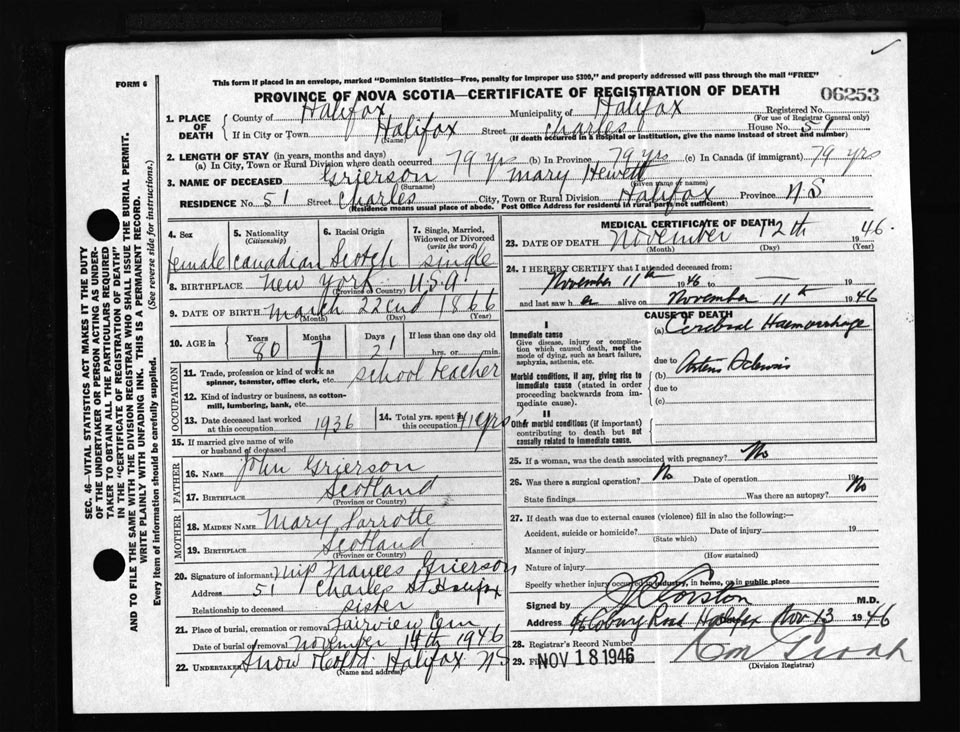 FORM 6
This form if placed in an envelope, marked "Dominion Statistics—Free, penalty for improper use $300," and properly addressed will pass through the mail "FREE"
PROVINCE OF NOVA SCOTIA—CERTIFICATE OF REGISTRATION OF DEATH
06253
1. PLACE OF DEATH
County of Halifax Municipality of Halifax Registered No.
(For use of Registrar General only)
If in City or Town Halifax Street Charles House No. 51
(Name) (If death occurred in a hospital or institution, give the name instead of street and number)
2. LENGTH OF STAY (in years, months and days)
(a) In City, Town or Rural Division where death occurred 79 yrs (b) In Province 79 yrs (c) In Canada (if immigrant) 79 yrs
3. NAME OF DECEASED Grierson Mary Hewett
(Surname) (Given name or names)
RESIDENCE No. 51 Street Charles City, Town or Rural Division Halifax Province N.S
(Residence means usual place of abode. Post Office Address for residents in rural parts not sufficient)
4. Sex
female
5. Nationality
(Citizenship)
Canadian
6. Racial Origin
Scotch
7. Single, Married, Widowed or Divorced
(write the word)
single
8. BIRTHPLACE New York U.S.A
(Province or Country)
9. DATE OF BIRTH March 22nd 1866
(Month) (Day) (Year)
10. AGE in
Years Months Days If less than one day old
80 7 21 hrs. or min.
OCCUPATION
11. Trade, profession or kind of work as spinner, teamster, office clerk, etc. school teacher
12. Kind of industry or business, as cotton-mill, lumbering, bank, etc.
13. Date deceased last worked at this occupation 1936
14. Total yrs. spent in this occupation 41 yrs
15. If married give name of wife or husband of deceased
FATHER
16. NAME John Grierson
17. BIRTHPLACE Scotland
(Province or Country)
MOTHER
18. MAIDEN NAME Mary
19. BIRTHPLACE Scotland
(Province or Country)
20. Signature of informant Frances Grierson
Address 51 Charles St Halifax
Relationship to deceased sister
21. Place of burial, cremation or removal Fairview Cem
Date of burial or removal November 14th 1946
22. Undertaker Snow Halifax N S
(Name and address)
MEDICAL CERTIFICATE OF DEATH
23. DATE OF DEATH November 12th 1946.
(Month) (Day) (Year)
24. I HEREBY CERTIFY that I attended deceased from:
November 11th 1946 to — 19
and last saw her alive on November 11th 1946
CAUSE OF DEATH
I
Immediate cause
Give disease, injury or complication which caused death, not the mode of dying, such as heart failure, asphyxia, asthenia, etc.
(a) Cerebral Haemorrhage
due to
Morbid conditions, if any, giving rise to immediate cause (stated in order proceeding backwards from immediate cause).
(b)
due to
(c)
II
Other morbid conditions (if important) contributing to death but not causally related to immediate cause.
25. If a woman, was the death associated with pregnancy? No
26. Was there a surgical operation? No Date of operation 19
State findings Was there an autopsy? No
27. If death was due to external causes (violence) fill in also the following:—
Accident, suicide or homicide? Date of injury 19
(State which)
Manner of injury
(How sustained)
Nature of injury
Specify whether injury occurred in industry, in home, or in public place
Signed by Corston M.D.
Address Coburg Road Halifax Nov 13 1946
28. Registrar's Record Number
29. Filed NOV 18 1946
(Division Registrar)
SEC. 46—VITAL STATISTICS ACT MAKES IT THE DUTY
OF THE UNDERTAKER OR PERSON ACTING AS UNDER-
TAKER TO OBTAIN ALL THE PARTICULARS REQUIRED
IN THE "CERTIFICATE OF REGISTRATION OF DEATH"
AND TO FILE THE SAME WITH THE DIVISION REGISTRAR WHO SHALL ISSUE THE BURIAL PERMIT.
WRITE PLAINLY WITH UNFADING INK. THIS IS A PERMANENT RECORD.
Every item of information should be carefully supplied. (See reverse side for instructions.)